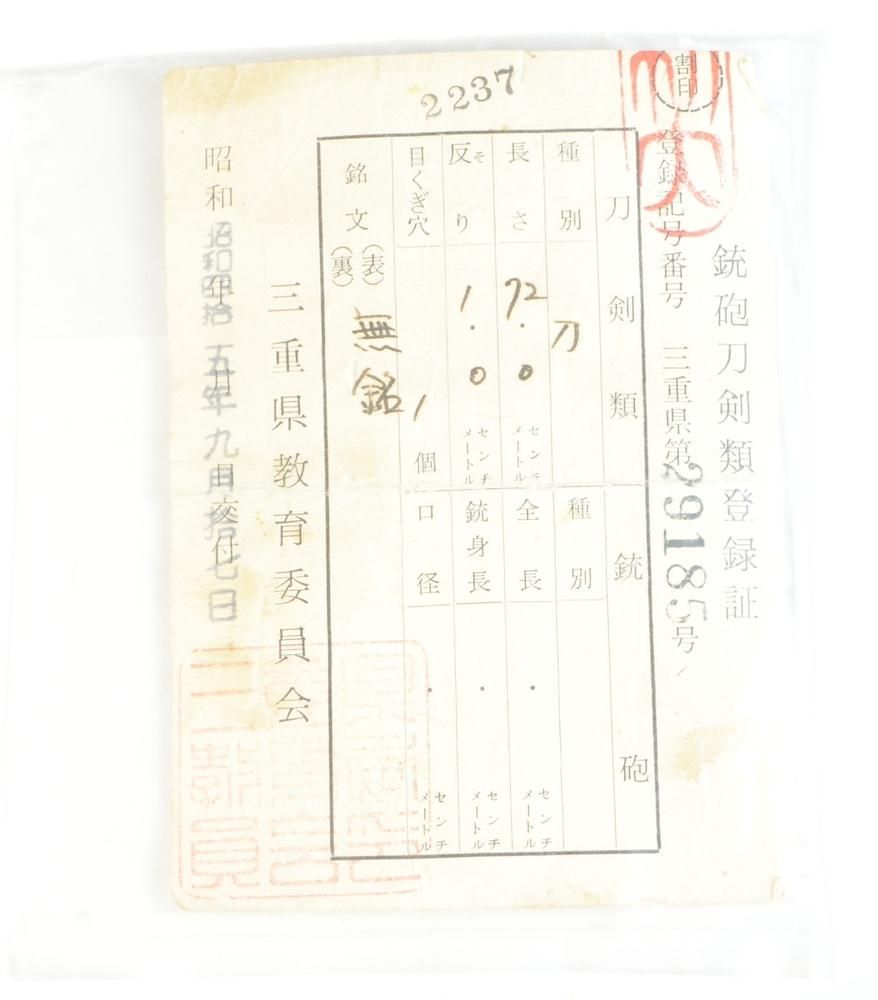 2237
割印
銃砲刀剣類登録証
登録記号番号 三重県第29185号
刀剣類
種別 刀
長さ 72.0 センチメートル
反り そり 1.0 センチメートル
目くぎ穴 1個
銘文 (表) (裏) 無銘
銃砲
種別
全長 . センチメートル
銃身長 . センチメートル
口径 . センチメートル
三重県教育委員会
昭和 年 月 日交付
昭和四拾五年九月拾七日